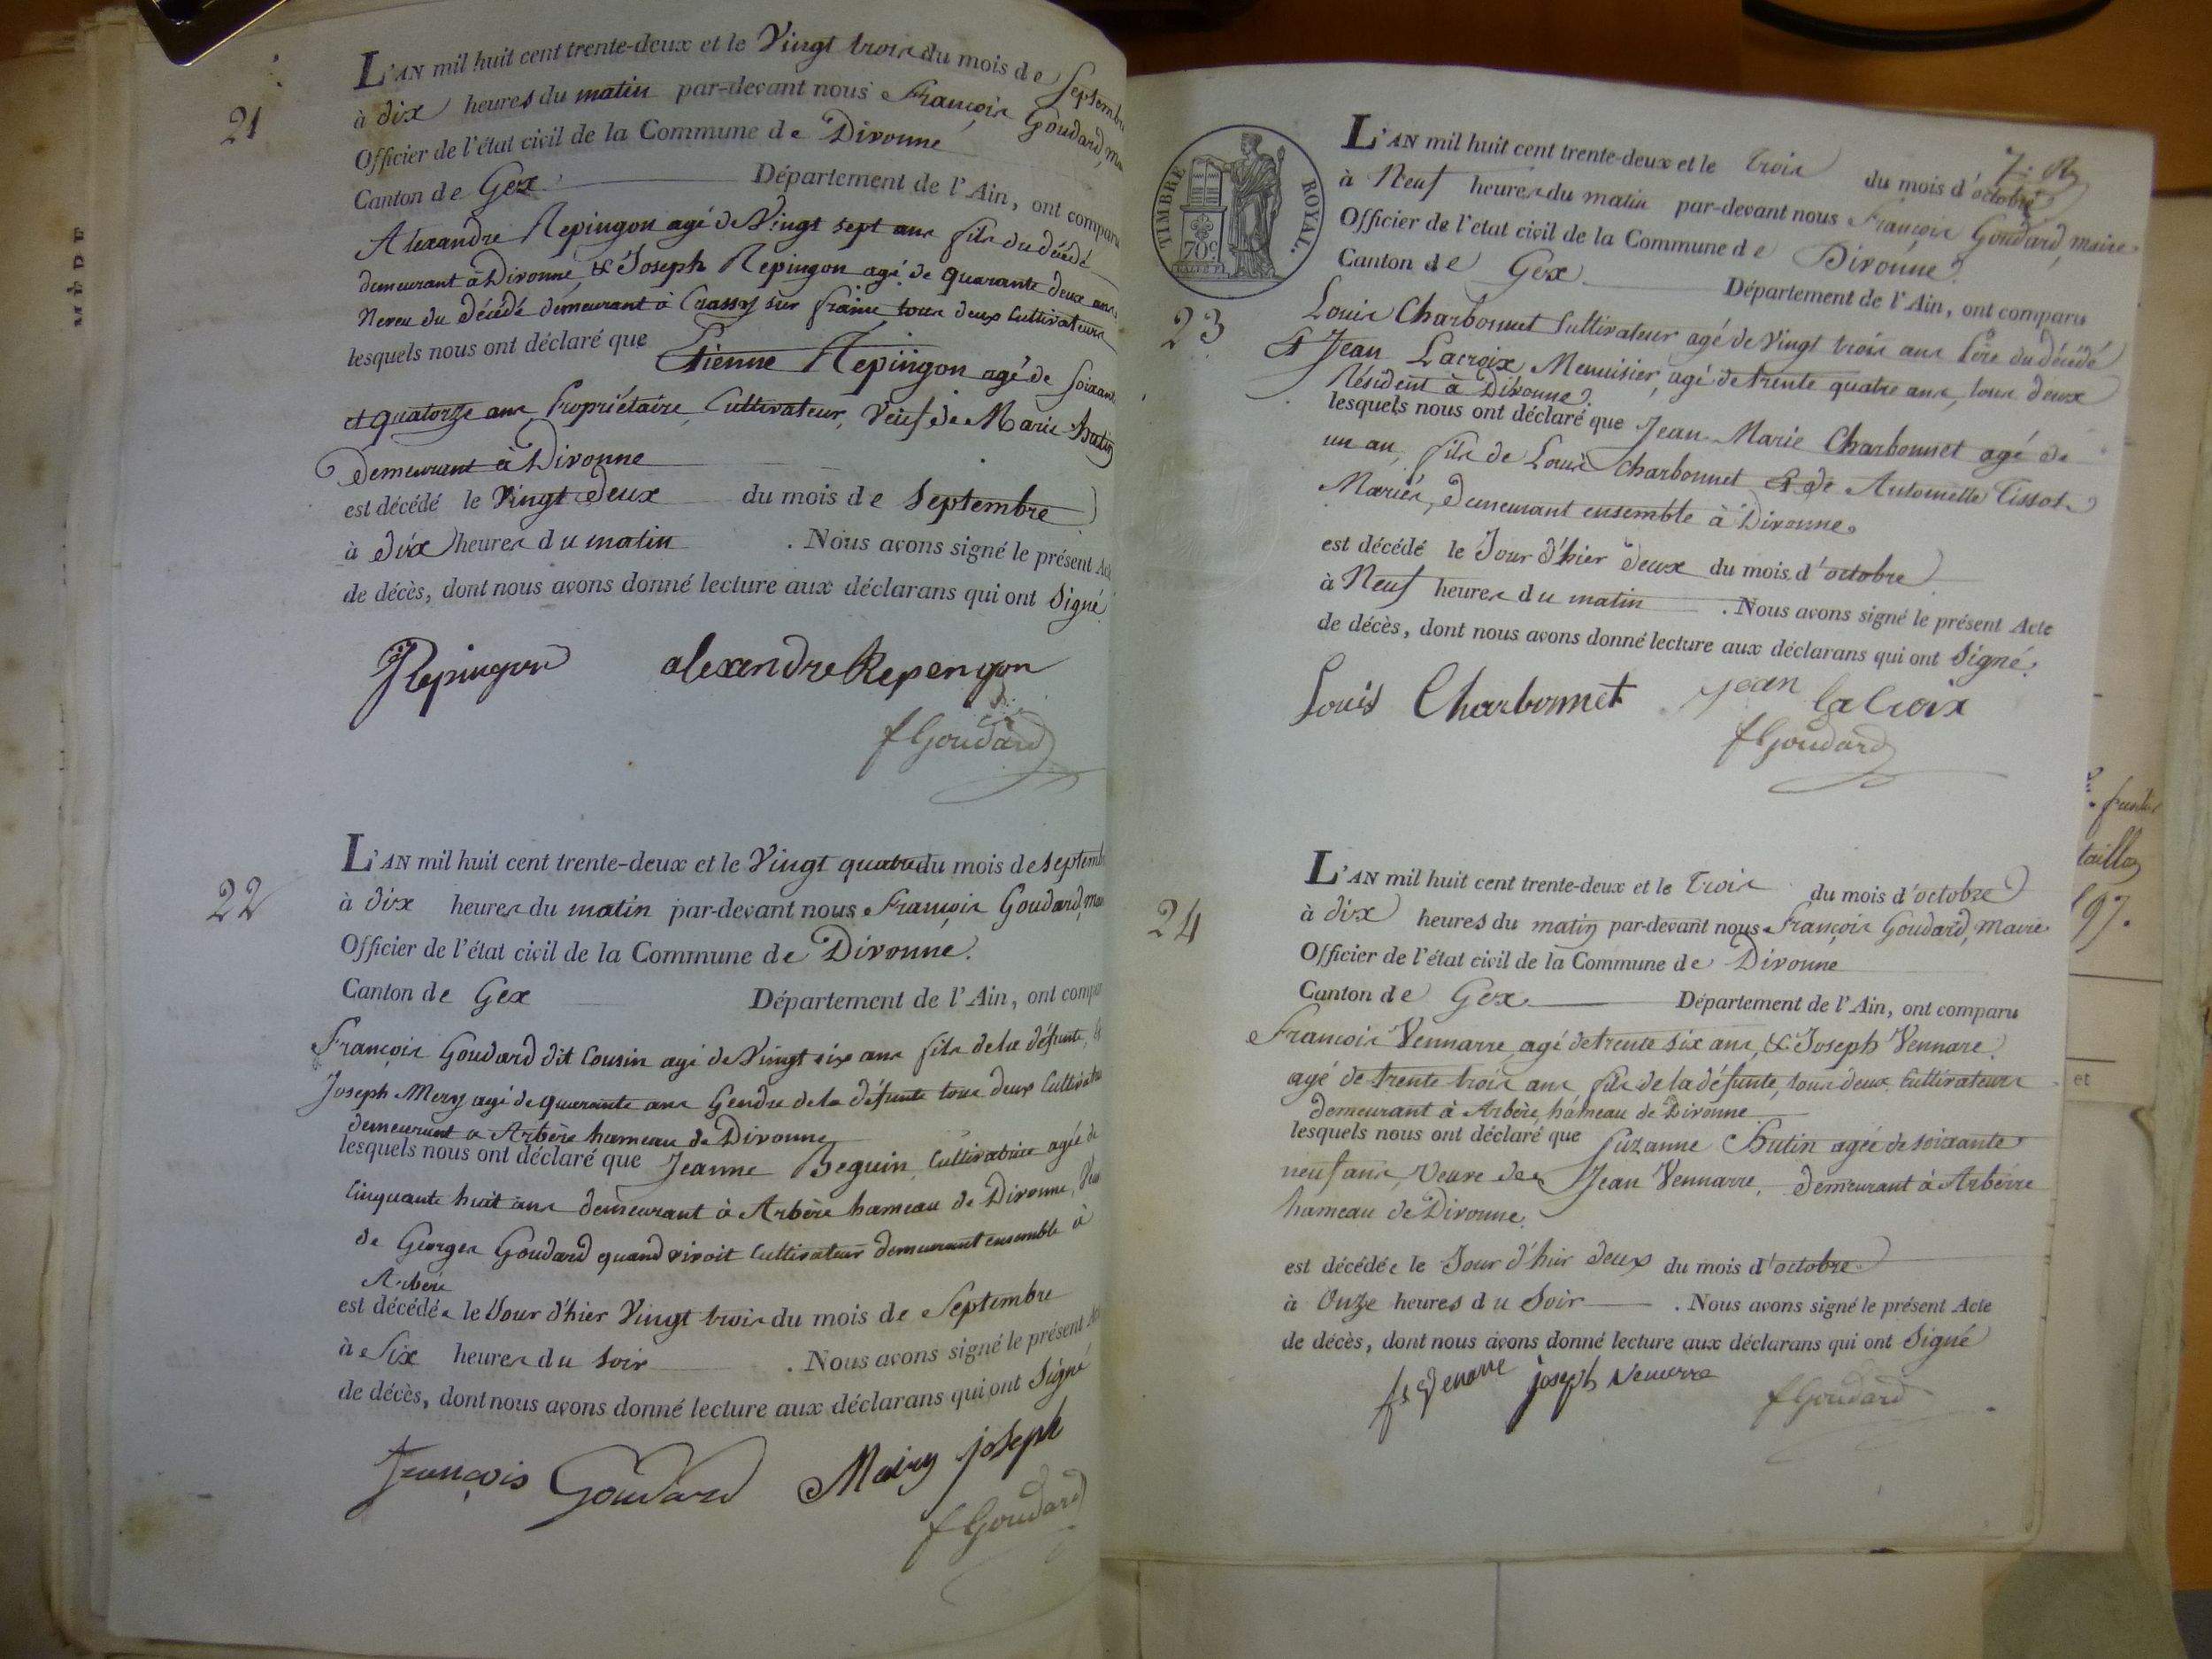 21
L'AN mil huit cent trente-deux et le Vingt trois du mois de Septembre
à dix heures du matin par-devant nous François Goudard, ma
Officier de l'état civil de la Commune de Divonne
Canton de Gex Département de l'Ain, ont comparu
Alexandre Repingon agé de Vingt sept ans fils du décédé
demeurant à Divonne, & Joseph Repingon agé de quarante deux ans
Neveu du décédé demeurant à Crassy sur france tous deux Cultivateurs
lesquels nous ont déclaré que Etienne Repingon agé de Soixante
et quatorze ans, Propriétaire, Cultivateur, Veuf de Marie hutin
Demeurant à Divonne
est décédé le Vingt deux du mois de Septembre
à dix heures du matin . Nous avons signé le présent Acte
de décès, dont nous avons donné lecture aux déclarans qui ont Signé
JRepingon alexandre Repengon
fGoudard
22
L'AN mil huit cent trente-deux et le Vingt quatre du mois de septembre
à dix heures du matin par-devant nous François Goudard, ma
Officier de l'état civil de la Commune de Divonne.
Canton de Gex Département de l'Ain, ont compa
François Goudard dit Cousin agé de Vingt six ans fils de la défunte, &
Joseph Mery agé de quarante ans Gendre de la défunte tous deux Cultivate
demeurant a Arbère hameau de Divonne
lesquels nous ont déclaré que Jeanne Beguin, Cultivatrice agée de
Cinquante huit ans demeurant à Arbère hameau de Divonne, Veu
de Georges Goudard quand vivoit Cultivateur demeurant ensemble à
Arbère
est décédée le Jour d'hier Vingt trois du mois de Septembre
à Six heures du soir . Nous avons signé le présent Ac
de décès, dont nous avons donné lecture aux déclarans qui ont Signé
François Goudard Mairy joseph
fGoudard
7.
TIMBRE ROYAL.
70c.
23
L'AN mil huit cent trente-deux et le trois du mois d'octobre
à Neuf heures du matin par-devant nous François Goudard, maire
Officier de l'état civil de la Commune de Divonne
Canton de Gex Département de l'Ain, ont comparu
Louis Charbonnet Cultivateur agé de Vingt trois ans Père du décédé
& Jean Lacroix, Menuisier, agé de trente quatre ans, tous deux
Résident à Divonne.
lesquels nous ont déclaré que Jean Marie Charbonnet agé de
un an, fils de Louis Charbonnet & de Antoinette Tissot
Mariés, demeurant ensemble à Divonne.
est décédé le Jour d'hier deux du mois d'octobre
à Neuf heures du matin . Nous avons signé le présent Acte
de décès, dont nous avons donné lecture aux déclarans qui ont Signé.
Louis Charbonnet jean la Croix
fGoudard
24
L'AN mil huit cent trente-deux et le trois du mois d'octobre
à dix heures du matin par-devant nous François Goudard, Maire
Officier de l'état civil de la Commune de Divonne
Canton de Gex Département de l'Ain, ont comparu
François Vennarre, agé de trente six ans, & Joseph Vennare
agé de trente trois ans fils de la défunte, tous deux Cultivateurs
demeurant à Arbère, hameau de Divonne
lesquels nous ont déclaré que Suzanne Hutin agée de soixante
neuf ans, Veuve de Jean Vennarre, demeurant à Arbérre
hameau de Divonne.
est décédée le Jour d'hier deux du mois d'octobre
à Onze heures du Soir . Nous avons signé le présent Acte
de décès, dont nous avons donné lecture aux déclarans qui ont Signé
fs Venarre joseph venerre
fGoudard
97.
et